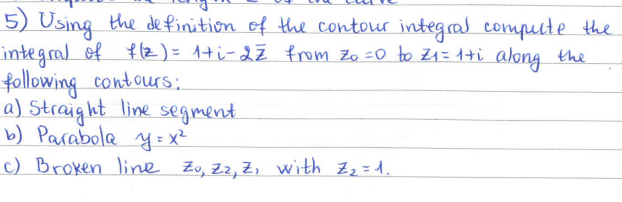 5) Using the definition of the contour integral compute the
integral of f(z) = 1+i-2z̄ from z₀ =0 to z₁= 1+i along the
following contours:
a) Straight line segment
b) Parabola y = x²
c) Broken line z₀, z₂, z₁ with z₂ = 1.